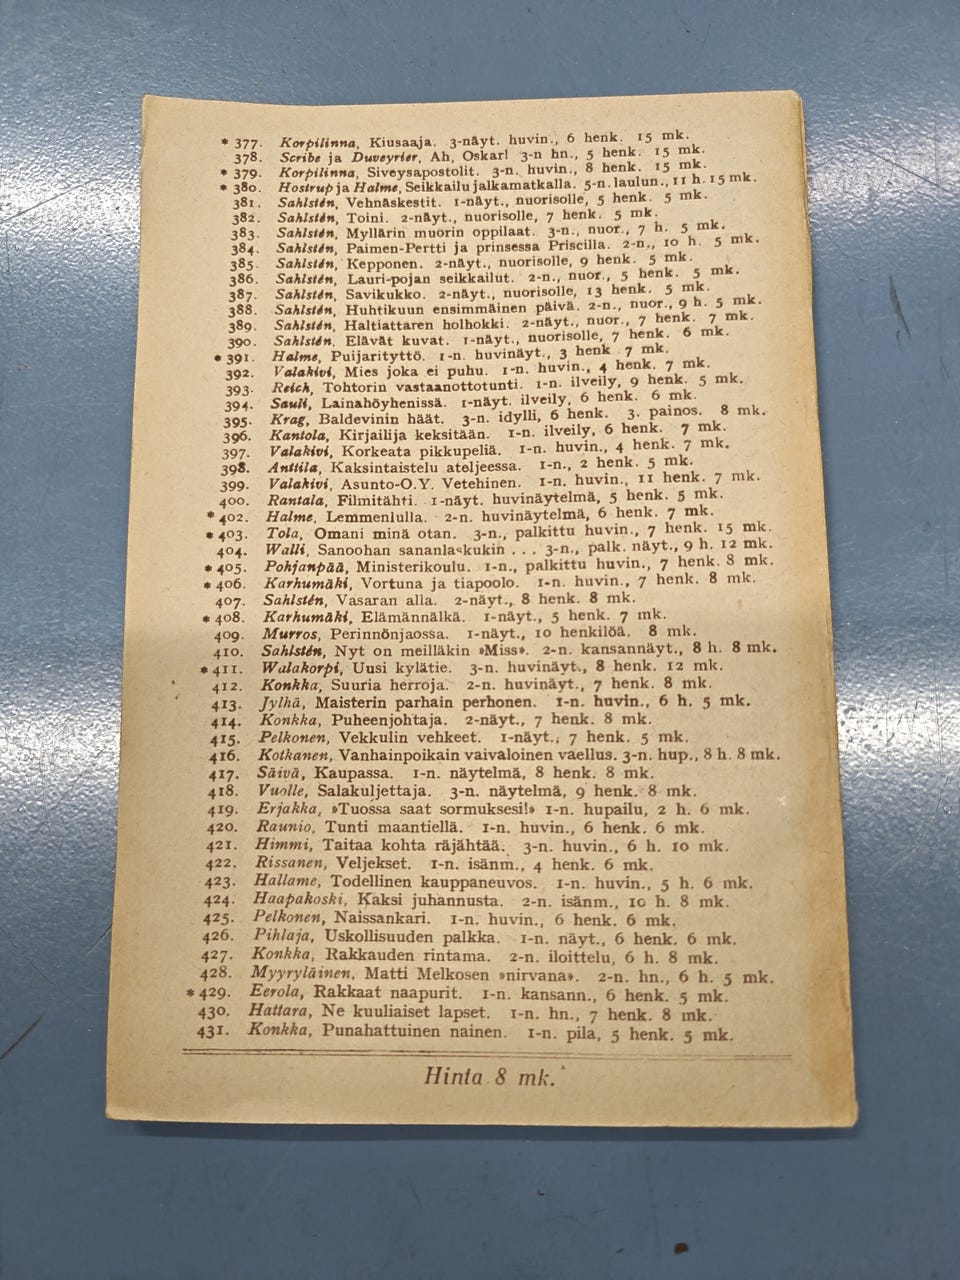 * 377. Korpilinna, Kiusaaja. 3-näyt. huvin., 6 henk. 15 mk.
378. Scribe ja Duveyrier, Ah, Oskar! 3-n hn., 5 henk. 15 mk.
* 379. Korpilinna, Siveysapostolit. 3-n. huvin., 8 henk. 15 mk.
* 380. Hostrup ja Halme, Seikkailu jalkamatkalla. 5-n. laulun., 11 h. 15 mk.
381. Sahlstén, Vehnäskestit. 1-näyt., nuorisolle, 5 henk. 5 mk.
382. Sahlstén, Toini. 2-näyt., nuorisolle, 7 henk. 5 mk.
383. Sahlstén, Myllärin muorin oppilaat. 3-n., nuor., 7 h. 5 mk.
384. Sahlstén, Paimen-Pertti ja prinsessa Priscilla. 2-n., 10 h. 5 mk.
385. Sahlstén, Kepponen. 2-näyt., nuorisolle, 9 henk. 5 mk.
386. Sahlstén, Lauri-pojan seikkailut. 2-n., nuor., 5 henk. 5 mk.
387. Sahlstén, Savikukko. 2-näyt., nuorisolle, 13 henk. 5 mk.
388. Sahlstén, Huhtikuun ensimmäinen päivä. 2-n., nuor., 9 h. 5 mk.
389. Sahlstén, Haltiattaren holhokki. 2-näyt., nuor., 7 henk. 7 mk.
390. Sahlstén, Elävät kuvat. 1-näyt., nuorisolle, 7 henk. 6 mk.
* 391. Halme, Puijarityttö. 1-n. huvinäyt., 3 henk 7 mk.
392. Valakivi, Mies joka ei puhu. 1-n. huvin., 4 henk. 7 mk.
393. Reich, Tohtorin vastaanottotunti. 1-n. ilveily, 9 henk. 5 mk.
394. Sauli, Lainahöyhenissä. 1-näyt. ilveily, 6 henk. 6 mk.
395. Krag, Baldevinin häät. 3-n. idylli, 6 henk. 3. painos. 8 mk.
396. Kantola, Kirjailija keksitään. 1-n. ilveily, 6 henk. 7 mk.
397. Valakivi, Korkeata pikkupeliä. 1-n. huvin., 4 henk. 7 mk.
398. Anttila, Kaksintaistelu ateljeessa. 1-n., 2 henk. 5 mk.
399. Valakivi, Asunto-O.Y. Vetehinen. 1-n. huvin., 11 henk. 7 mk.
400. Rantala, Filmitähti. 1-näyt. huvinäytelmä, 5 henk. 5 mk.
* 402. Halme, Lemmenlulla. 2-n. huvinäytelmä, 6 henk. 7 mk.
* 403. Tola, Omani minä otan. 3-n., palkittu huvin., 7 henk. 15 mk.
404. Walli, Sanoohan sananlaskukin . . . 3-n., palk. näyt., 9 h. 12 mk.
* 405. Pohjanpää, Ministerikoulu. 1-n., palkittu huvin., 7 henk. 8 mk.
* 406. Karhumäki, Vortuna ja tiapoolo. 1-n. huvin., 7 henk. 8 mk.
407. Sahlstén, Vasaran alla. 2-näyt., 8 henk. 8 mk.
* 408. Karhumäki, Elämännälkä. 1-näyt., 5 henk. 7 mk.
409. Murros, Perinnönjaossa. 1-näyt., 10 henkilöä. 8 mk.
410. Sahlstén, Nyt on meilläkin »Miss». 2-n. kansannäyt., 8 h. 8 mk.
* 411. Walakorpi, Uusi kylätie. 3-n. huvinäyt., 8 henk. 12 mk.
412. Konkka, Suuria herroja. 2-n. huvinäyt., 7 henk. 8 mk.
413. Jylhä, Maisterin parhain perhonen. 1-n. huvin., 6 h. 5 mk.
414. Konkka, Puheenjohtaja. 2-näyt., 7 henk. 8 mk.
415. Pelkonen, Vekkulin vehkeet. 1-näyt., 7 henk. 5 mk.
416. Kotkanen, Vanhainpoikain vaivaloinen vaellus. 3-n. hup., 8 h. 8 mk.
417. Säivä, Kaupassa. 1-n. näytelmä, 8 henk. 8 mk.
418. Vuolle, Salakuljettaja. 3-n. näytelmä, 9 henk. 8 mk.
419. Erjakka, »Tuossa saat sormuksesi!» 1-n. hupailu, 2 h. 6 mk.
420. Raunio, Tunti maantiellä. 1-n. huvin., 6 henk. 6 mk.
421. Himmi, Taitaa kohta räjähtää. 3-n. huvin., 6 h. 10 mk.
422. Rissanen, Veljekset. 1-n. isänm., 4 henk. 6 mk.
423. Hallame, Todellinen kauppaneuvos. 1-n. huvin., 5 h. 6 mk.
424. Haapakoski, Kaksi juhannusta. 2-n. isänm., 10 h. 8 mk.
425. Pelkonen, Naissankari. 1-n. huvin., 6 henk. 6 mk.
426. Pihlaja, Uskollisuuden palkka. 1-n. näyt., 6 henk. 6 mk.
427. Konkka, Rakkauden rintama. 2-n. iloittelu, 6 h. 8 mk.
428. Myyryläinen, Matti Melkosen »nirvana». 2-n. hn., 6 h. 5 mk.
* 429. Eerola, Rakkaat naapurit. 1-n. kansann., 6 henk. 5 mk.
430. Hattara, Ne kuuliaiset lapset. 1-n. hn., 7 henk. 8 mk.
431. Konkka, Punahattuinen nainen. 1-n. pila, 5 henk. 5 mk.
Hinta 8 mk.